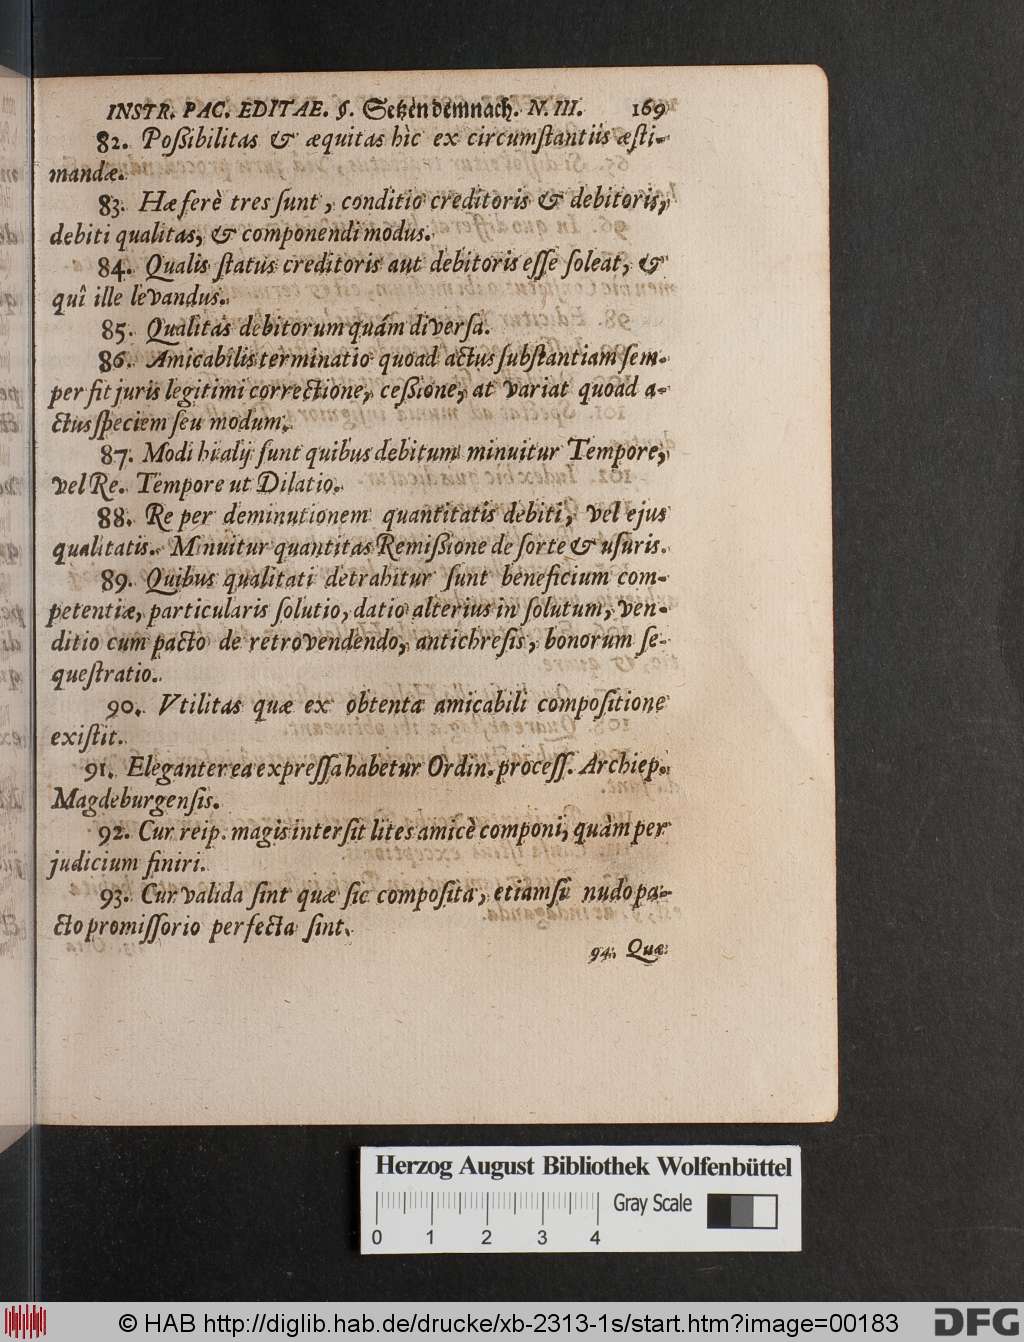 INSTR. PAC. EDITAE. §. Setzen demnach. N. III. 169
82. Poßibilitas & æquitas hìc ex circumſtantiis æſti-
mandæ.
83. Hæ ferè tres ſunt, conditio creditoris & debitoris,
debiti qualitas, & componendi modus.
84. Qualis ſtatus creditoris aut debitoris eſſe ſoleat, &
quî ille levandus.
85. Qualitas debitorum quám diverſa.
86. Amicabilis terminatio quoad actus ſubſtantiam ſem-
per fit juris legitimi correctione, ceßione, at variat quoad a-
ctus ſpeciem ſeu modum.
87. Modi hi alij ſunt quibus debitum minuitur Tempore,
vel Re. Tempore ut Dilatio.
88. Re per deminutionem quantitatis debiti, vel ejus
qualitatis. Minuitur quantitas Remißione de ſorte & uſuris.
89. Quibus qualitati detrahitur ſunt beneficium com-
petentiæ, particularis ſolutio, datio alterius in ſolutum, ven-
ditio cum pacto de retrovendendo, antichreſis, bonorum ſe-
queſtratio.
90. Vtilitas quæ ex obtenta amicabili compoſitione
exiſtit.
91. Eleganter ea expreſſa habetur Ordin. proceſſ. Archiep.
Magdeburgenſis.
92. Cur reip. magis interſit lites amicè componi, quàm per
judicium finiri.
93. Cur valida ſint quæ ſic compoſita, etiamſi nudo pa-
cto promiſſorio perfecta ſint.
94. Quæ
Herzog August Bibliothek Wolfenbüttel
Gray Scale
0 1 2 3 4
© HAB http://diglib.hab.de/drucke/xb-2313-1s/start.htm?image=00183
DFG